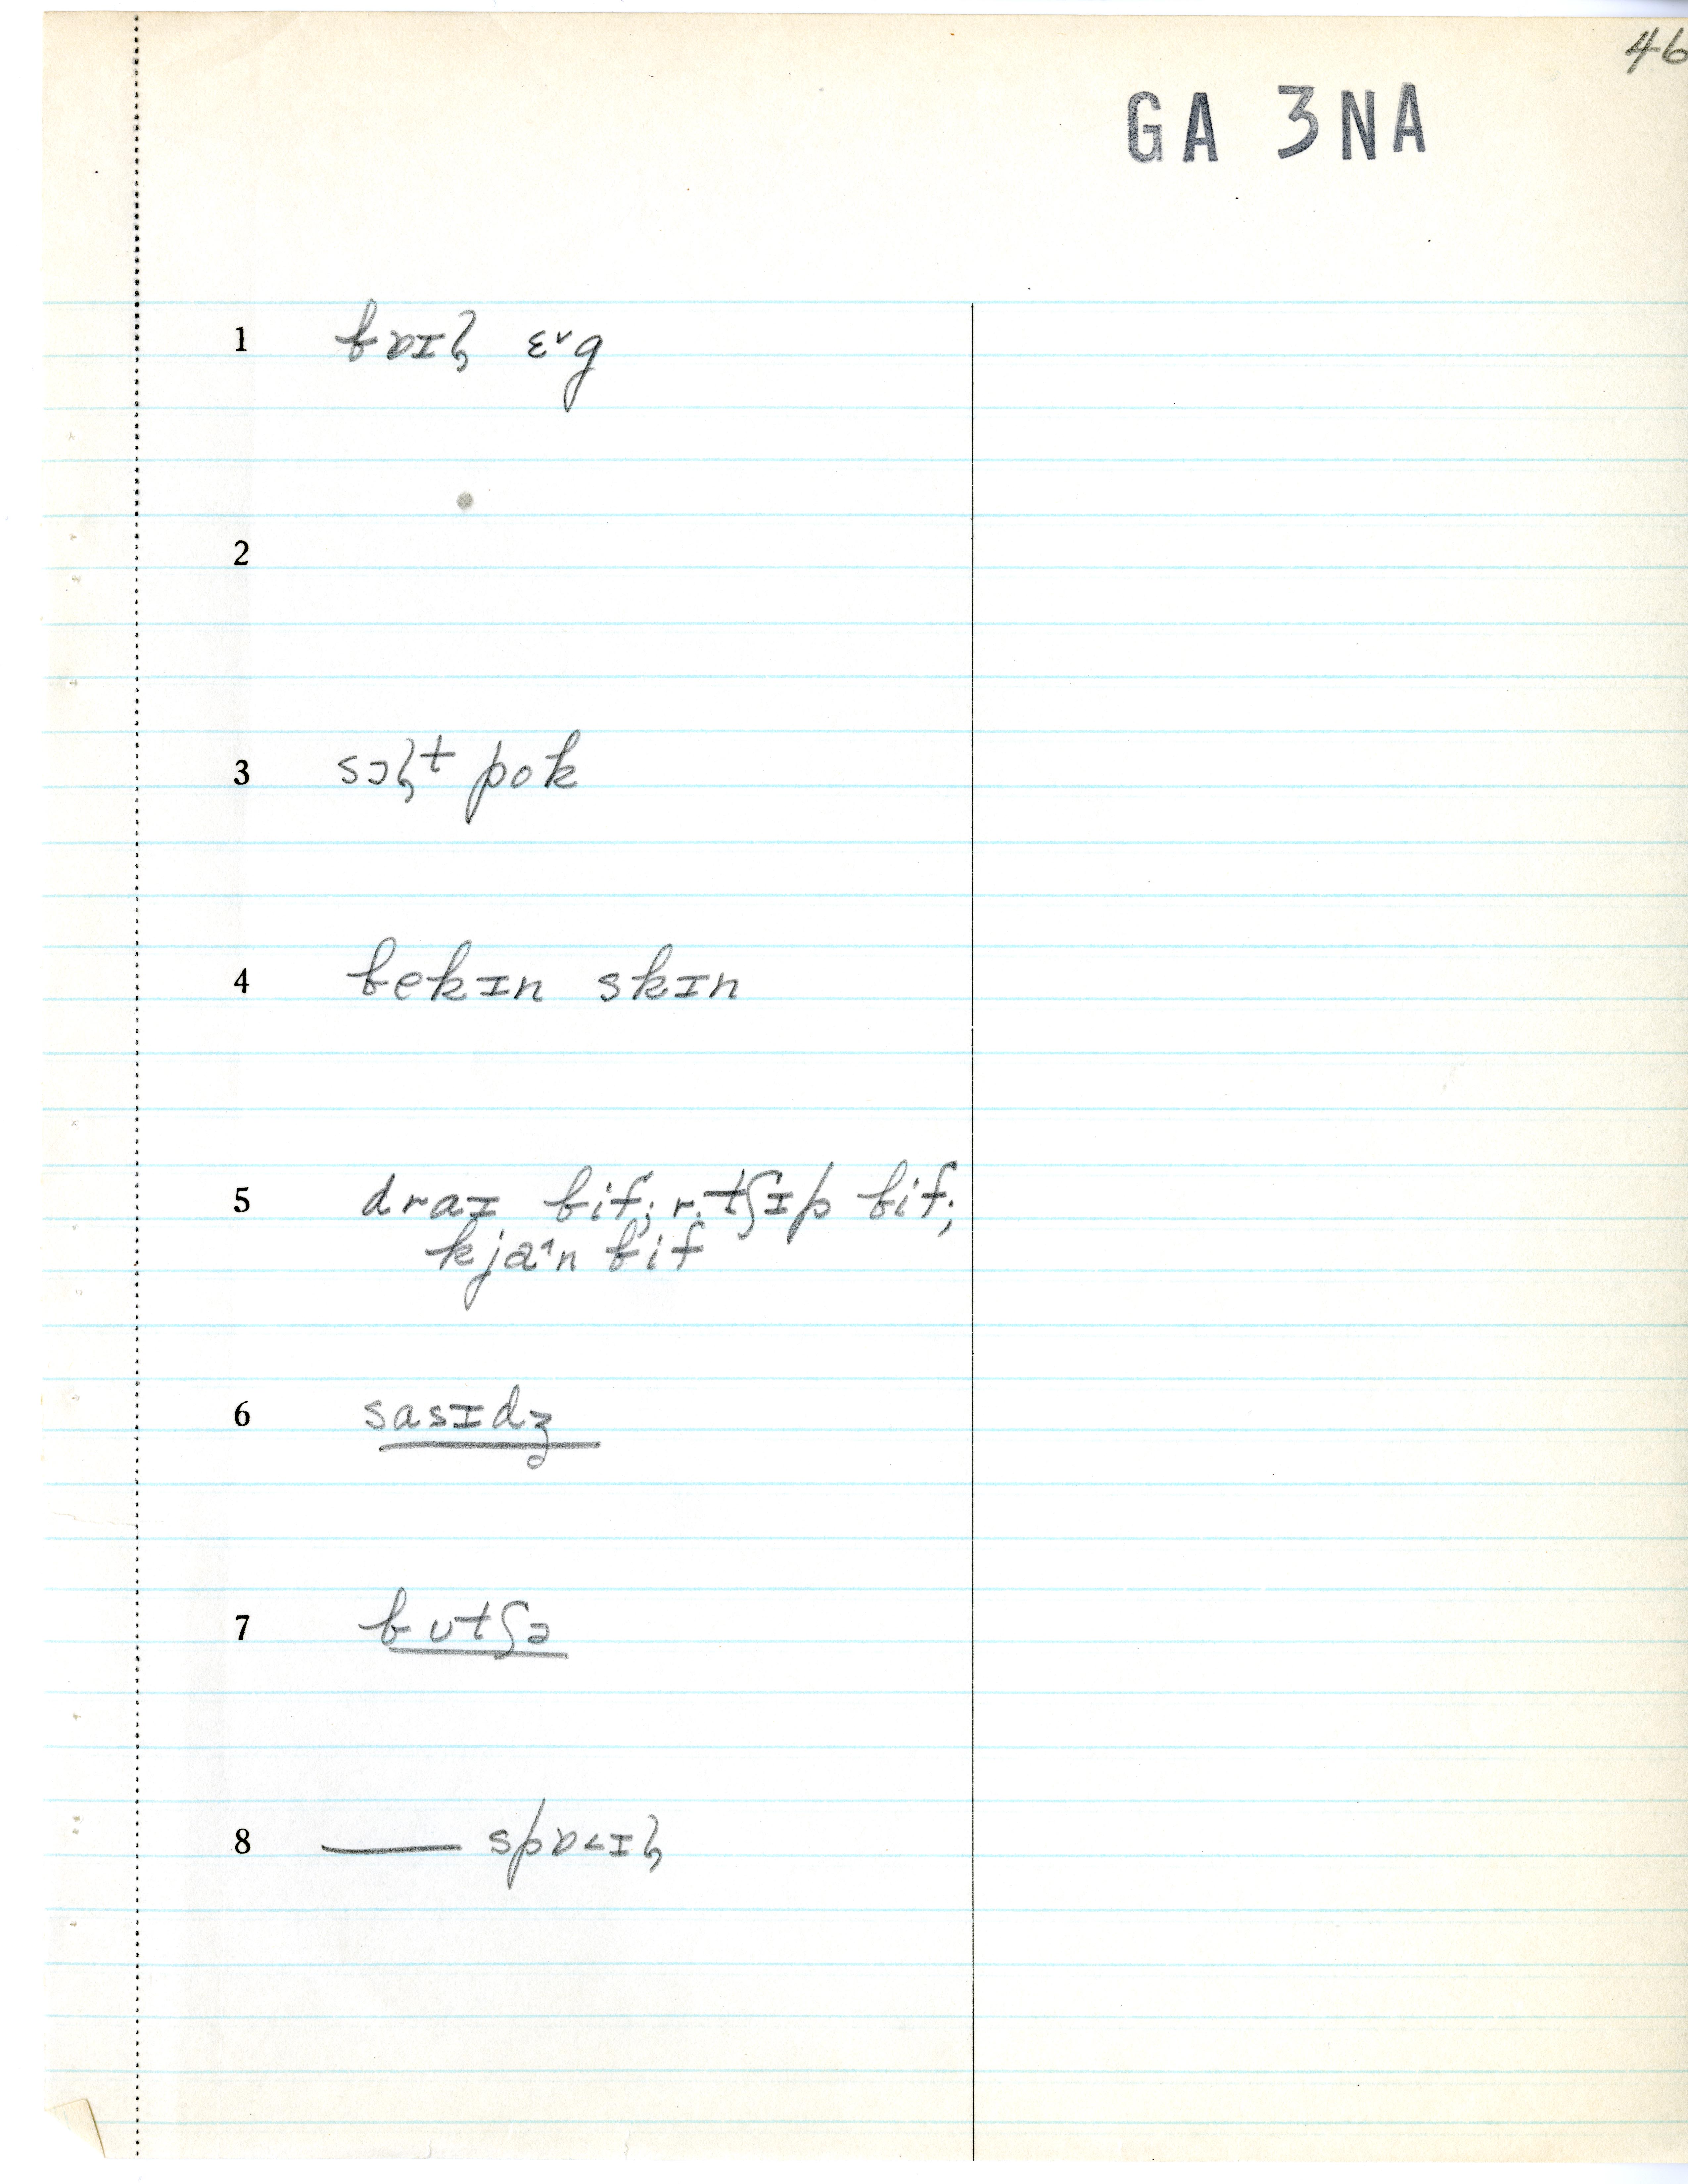 46
GA 3NA
1 bɒɪɫ ɛᵛg
2
3 sɔɫt pok
4 bekɪn skɪn
5 draɪ bif; r. tʃɪp bif;
kja˄n bif
6 sasɪdʒ
7 bʊtʃə
8 —— spɒ˂ɪɫ